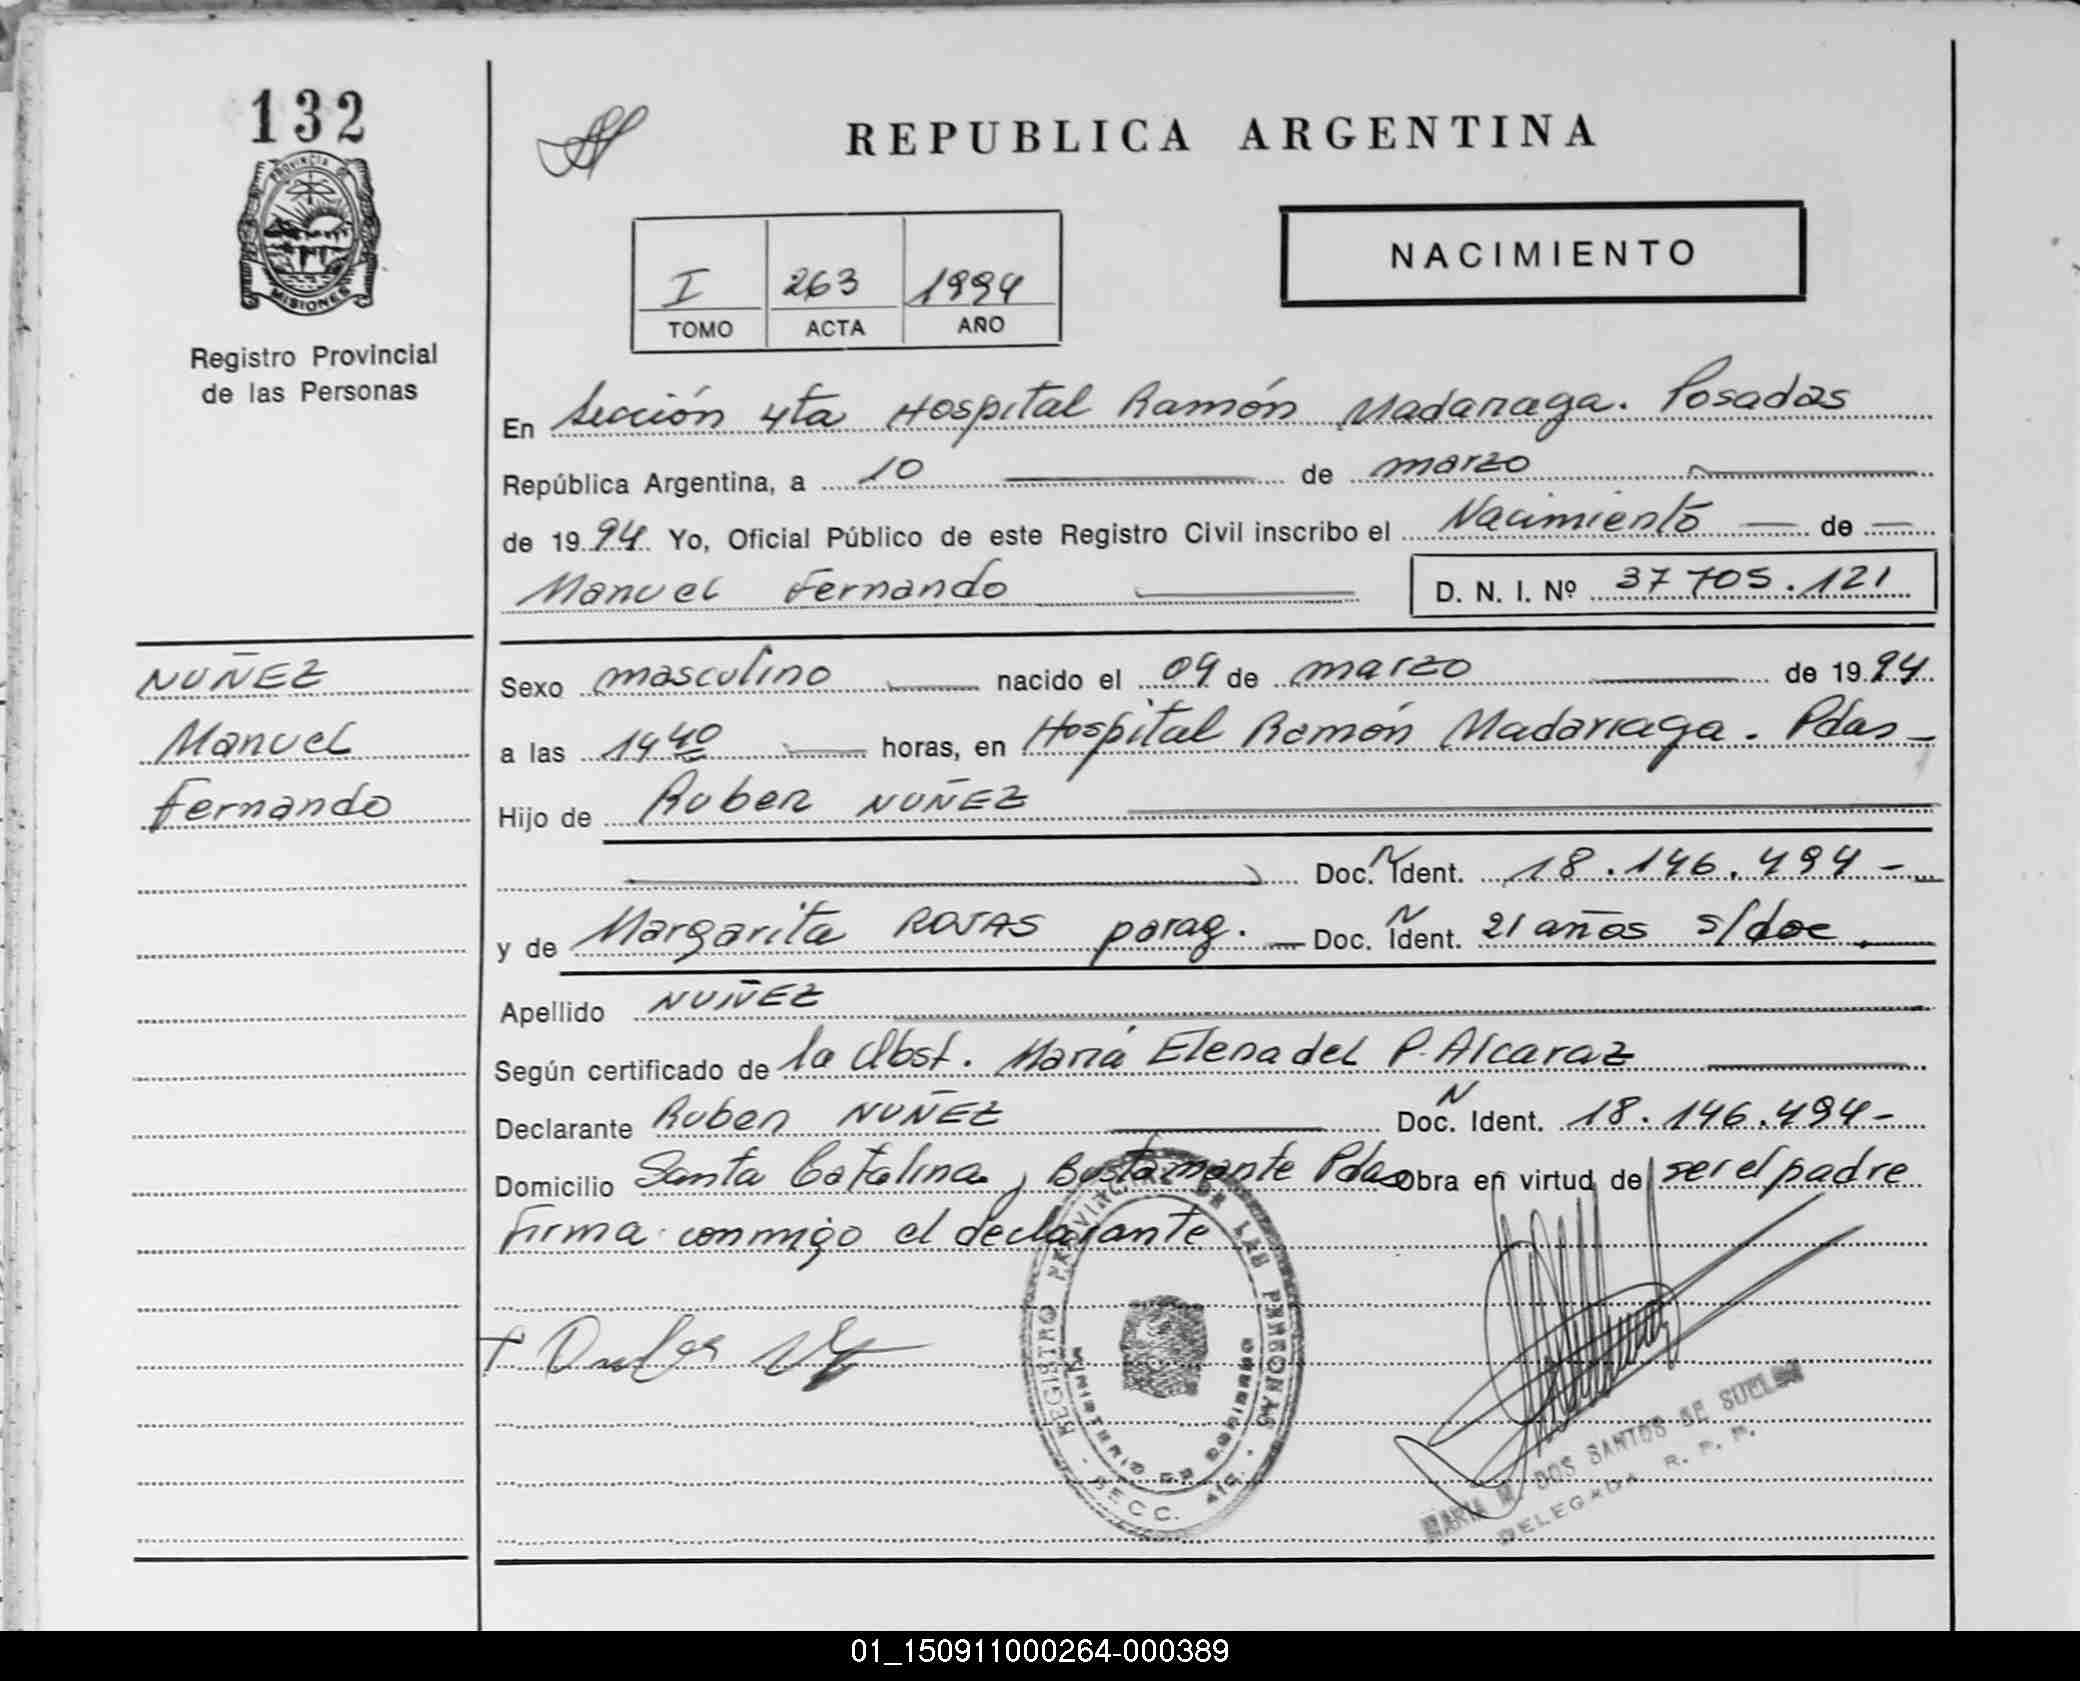 132
PROVINCIA DE
MISIONES
Registro Provincial
de las Personas
REPUBLICA ARGENTINA
NACIMIENTO
I 263 1994
TOMO ACTA AÑO
En Sección 4ta Hospital Ramón Madariaga. Posadas
República Argentina, a 10 de marzo
de 1994 Yo, Oficial Público de este Registro Civil inscribo el Nacimiento de
Manuel Fernando D. N. I. Nº 37705.121
NUÑEZ
Manuel
Fernando
Sexo masculino nacido el 09 de marzo de 1994
a las 19 40 horas, en Hospital Ramón Madariaga. Pdas
Hijo de Ruben NUÑEZ
Doc. N Ident. 18.146.494-
y de Margarita ROJAS parag. Doc. N Ident. 21 años s/doc.
Apellido NUÑEZ
Según certificado de la Obst. María Elena del P. Alcaraz
Declarante Ruben NUÑEZ Doc. N Ident. 18.146.494-
Domicilio Santa Catalina y Bustamante Pdas Obra en virtud de ser el padre
Firma conmigo el declarante
REGISTRO PROVINCIAL DE LAS PERSONAS
MINISTERIO DE GOBIERNO
SECC. 4ta.
MARIA M. DOS SANTOS DE
DELEGADA R. P. P.
01_150911000264-000389